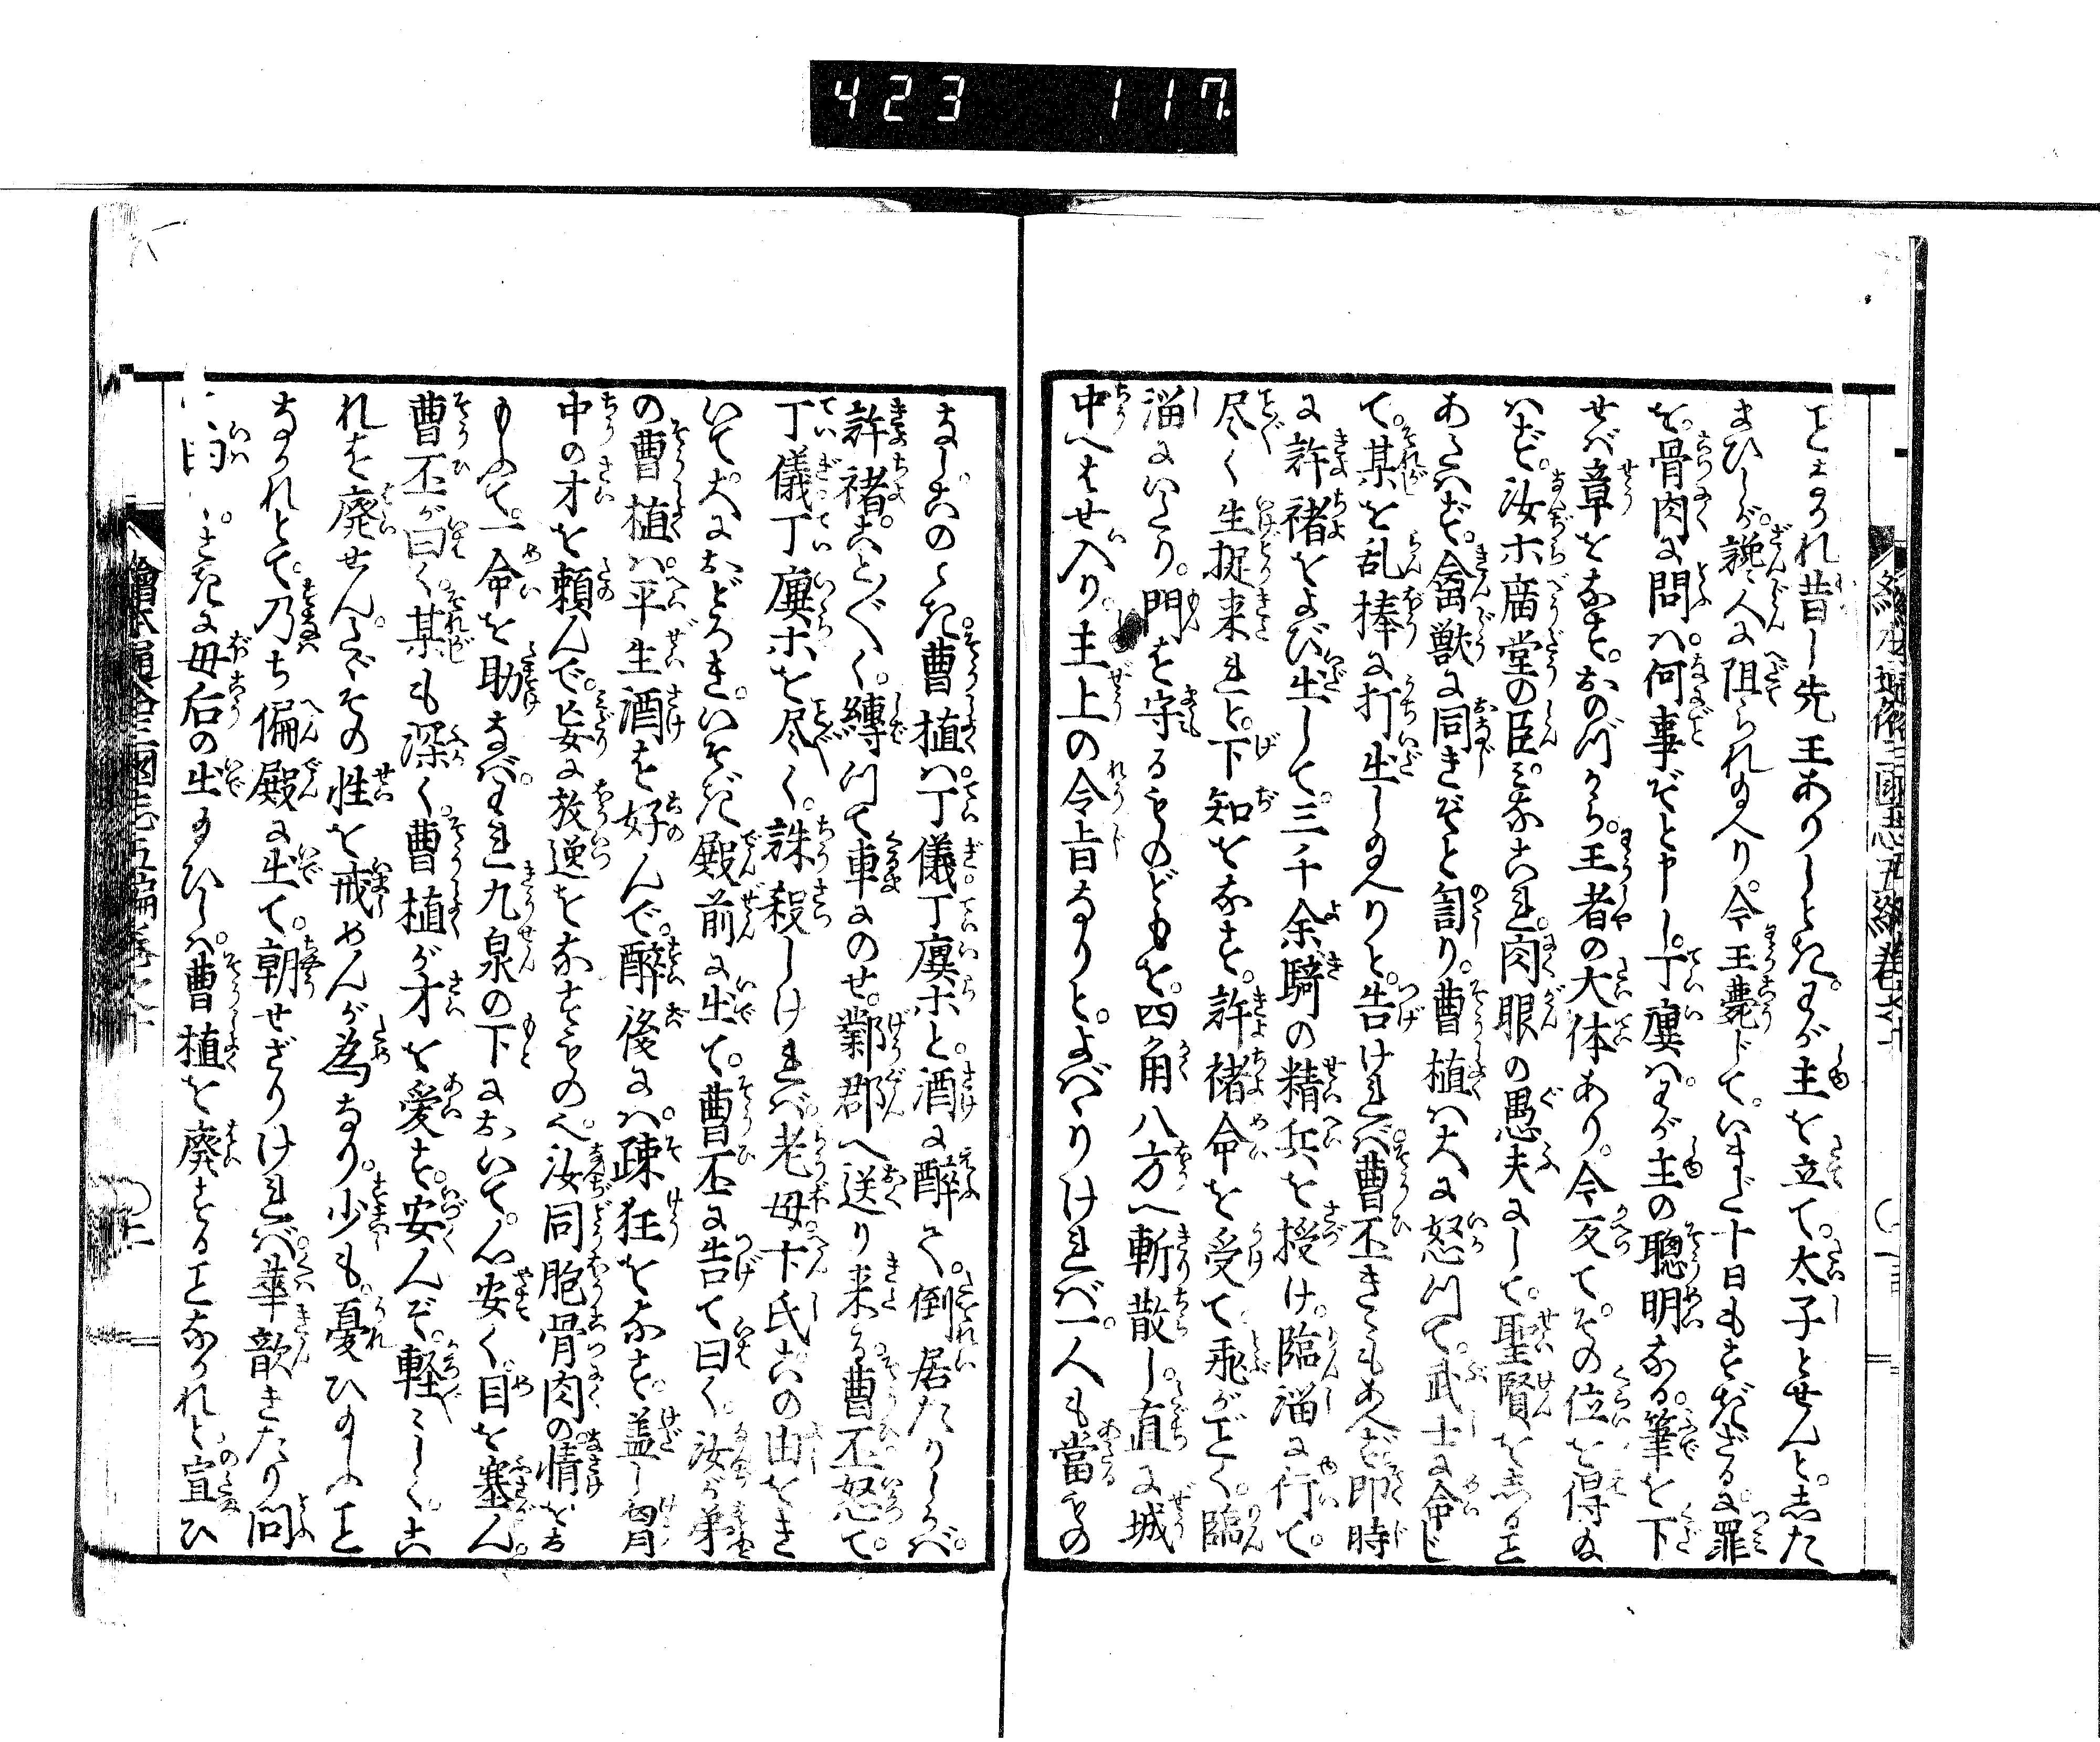 423 117
ことなかれ昔し先王ありしとき。わが主を立て。太子とせんと。志た
まひしが。讒人に阻られ玉へり。今王薨じて。いまだ十日もすぎざるに。罪
を。骨肉に問は。何事ぞと申し。丁廙は。わが主の聰明なる。筆を下
せば章をなす。おのづから。王者の大体あり。今反て。その位を得玉
はず。汝ホ庿堂の臣。みなこれ。肉眼の愚夫にして。聖賢を志ること
あたはず。禽獣に同きぞと訇り。曹植は大に怒つて。武士に命じ
て。某を乱棒に打出し玉へりと。告ければ曹丕きゝもあへず即時
に許褚をよび出して。三千余騎の精兵を授け。臨淄に行て。
尽く生捉来れと。下知をなす。許褚命を受て飛がごとく。臨
淄にいたり。門を守るものどもを。四角八方へ斬散し。直に城
中へはせ入り。主上の令旨なりと。よばゝりければ。一人も當もの
なし。このとき。曹植は。丁儀丁廙ホと。酒に醉て。倒居たりしかば。
許褚。ことごとく。縛つて車にのせ。鄴郡へ送り来る。曹丕怒て。
丁儀丁廙ホを尽く。誅殺しければ。老母卞氏。この由をき
いて。大におどろき。いそぎ殿前に出て。曹丕に告て曰く。汝が弟
の曹植は。平生酒を好んで。醉後には。疎狂をなす。盖し胷
中の才を頼んで。妄に放逸をなすもの也。汝同胞骨肉の。情をお
もふて。一命を助なば。われ九泉の下において。心安く。目を塞ん。
曹丕が曰く。某も深く。曹植が才を愛す。安んぞ。軽〱しく。こ
れを廃せん。たゞその性を戒めんが為なり。少も。憂ひ玉ふこと
なかれとて。乃ち偏殿に出て。朝せざりければ。華歆きたり問
ときに母后の出玉ひしは。曹植を廃することなかれと。宣ひ